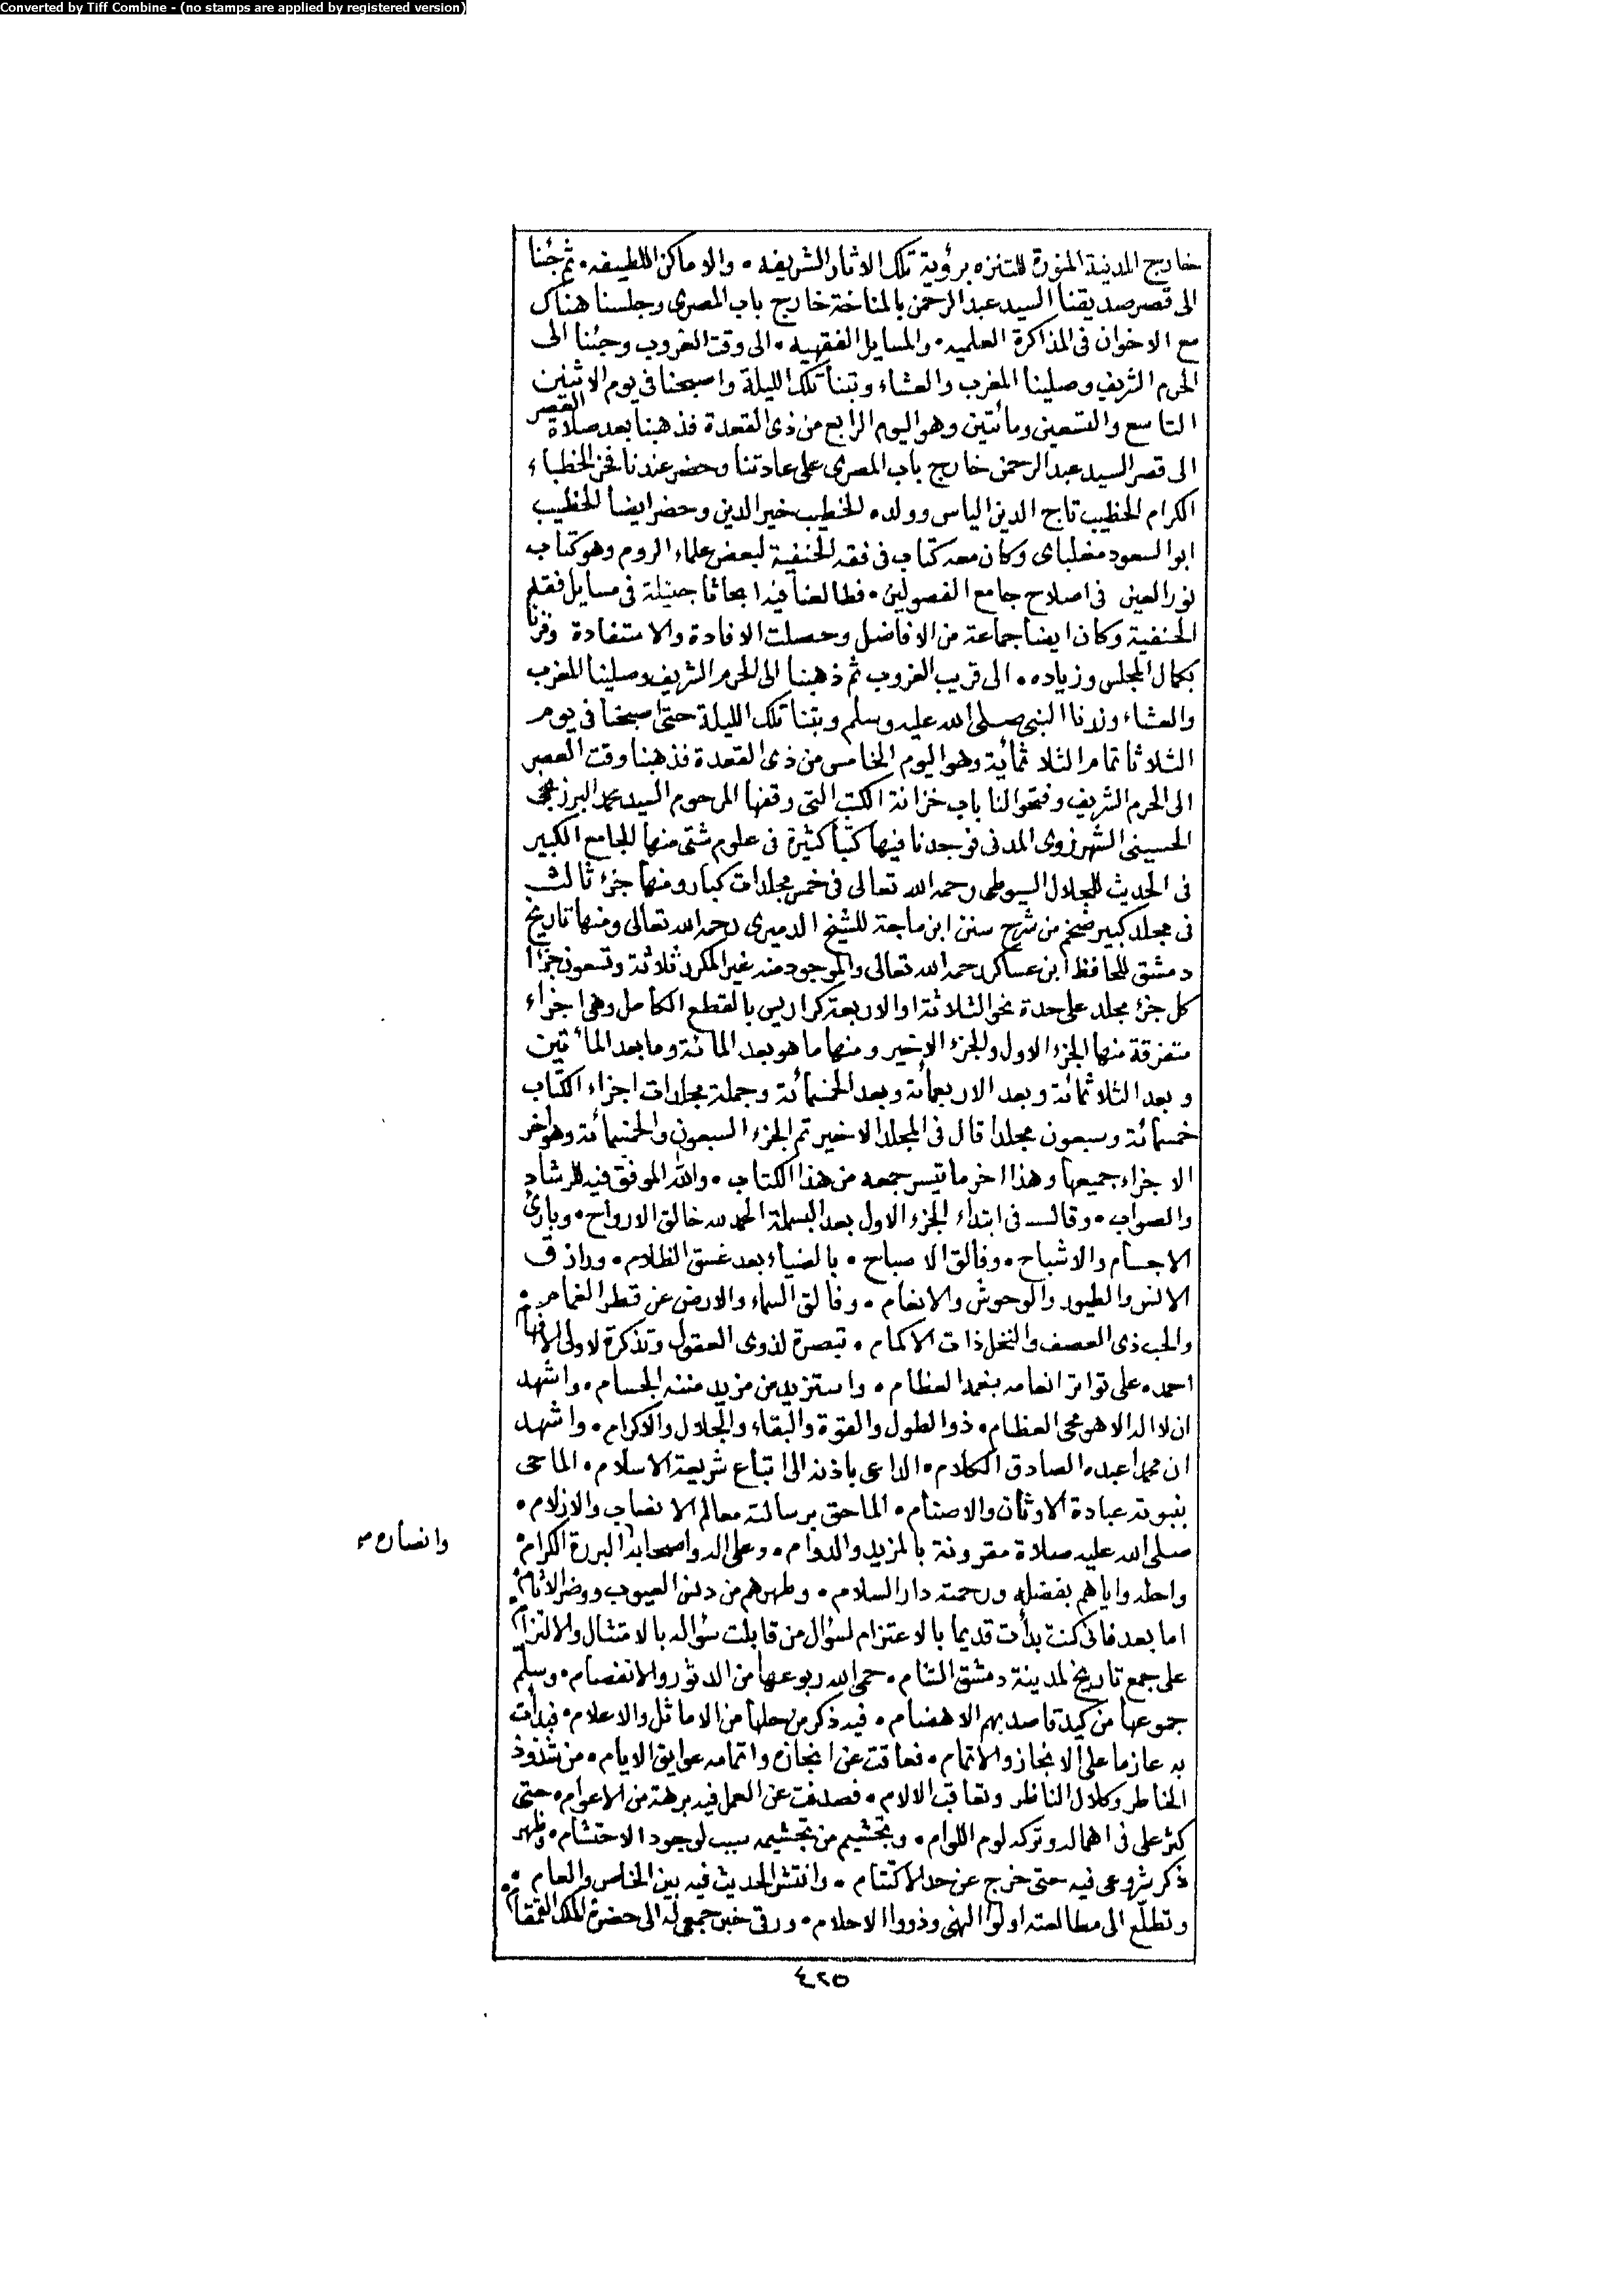 Converted by Tiff Combine - (no stamps are applied by registered version)
خارج المدينة المنورة للتنزه برؤية تلك الاثار الشريفه • والاماكن اللطيفه • ثم جئنا
الى قصر صديقنا السيد عبد الرحمن بالمناخة خارج باب المصرى وجلسنا هناك
مع الاخوان فى المذاكرة العلميه • والمسايل الفقهيه • الى وقت الغروب وجئنا الى
الحرم الشريف وصلينا المغرب والعشاء وبتنا تلك الليلة واصبحنا فى يوم الاثنين
التاسع والتسعين ومأتين وهو اليوم الرابع من ذى القعدة فذهبنا بعد صلاة العصر
الى قصر السيد عبد الرحمن خارج باب المصرى على عادتنا وحضر عندنا فخر الخطباء
الكرام الخطيب تاج الدين الياس وولده الخطيب خير الدين وحضر ايضا الخطيب
ابو السعود مغلباى وكان معه كتاب فى فقه الحنفية لبعض علماء الروم وهو كتاب
نور العين فى اصلاح جامع الفصولين • فطالعنا فيه ابحاثا جليلة فى مسايل فقه
الحنفية وكان ايضا جماعة من الافاضل وحصلت الافادة والاستفادة وفزنا
بكمال المجلس وزياده • الى قريب الغروب ثم ذهبنا الى الحرم الشريف وصلينا المغرب
والعشاء وزرنا النبى صلى الله عليه وسلم وبتنا تلك الليلة حتى اصبحنا فى يوم
الثلاثا تمام الثلاثمائة وهو اليوم الخامس من ذى القعدة فذهبنا وقت العصر
الى الحرم الشريف وفتحوا لنا باب خزانة الكتب التى وقفها المرحوم السيد محمد البرزنجى
الحسينى الشهرزورى المدنى فوجدنا فيها كتبا كثيرة فى علوم شتى منها الجامع الكبير
فى الحديث للجلال السيوطى رحمه الله تعالى فى خمس مجلدات كبار ومنها جزء ثالث
فى مجلد كبير ضخم من شرح سنن ابن ماجة للشيخ الدميرى رحمه الله تعالى ومنها تاريخ
دمشق للحافظ ابن عساكر رحمه الله تعالى والموجود منه غير المكرر ثلاثة وتسعون جزءا
كل جزء مجلد على حدة نحو الثلاثة او الاربعة كراريس بالقطع الكامل وهى اجزاء
متفرقة منها الجزء الاول والجزء الاخير ومنها ما هو بعد المائة وما بعد المأتين
وبعد الثلاثمائة وبعد الاربعمائة وبعد الخمسمائة وجملة مجلدات اجزاء الكتاب
خمسمائة وسبعون مجلدا قال فى المجلد الاخير تم الجزء السبعون والخمسمائة وهو اخر
الاجزاء جميعها وهذا اخر ما تيسر جمعه من هذا الكتاب • والله الموفق فيه للرشاد
والصواب • وقال فى ابتداء الجزء الاول بعد البسملة الحمد لله خالق الارواح • وبارئ
الاجسام والاشباح • وفالق الاصباح • بالضياء بعد غسق الظلام • ورازق
الانس والطيور والوحوش والانعام • وفالق السماء والارض عن قطر الغمام •
والحب ذى العصف والنخل ذات الاكمام • تبصرة لذوى العقول وتذكرة لاولى الافهام
احمده على تواتر انعامه بنعمه العظام • واستزيده من مزيد مننه الجسام • واشهد
ان لا اله الا هو محى العظام • ذو الطول والقوة والبقاء والجلال والاكرام • واشهد
ان محمدا عبده الصادق الكلام • الداعى باذنه الى اتباع شريعة الاسلام • الماحى
بنبوته عبادة الاوثان والاصنام • الماحق برسالته معالم الانصاب والازلام •
صلى الله عليه صلاة مقرونة بالمزيد والدوام • وعلى اله واصحابه البررة الكرام •
واحله واياهم بفضله ورحمته دار السلام • وطهرهم من دنس العيوب ووضر الاثام •
اما بعد فانى كنت بدأت قديما بالاعتزام لسؤال من قابلت سؤاله بالامتثال والالتزام
على جمع تاريخ لمدينة دمشق الشام • حمى الله ربوعها من الدثور والانفصام • وسلم
جموعها من كيد قاصد بهم الاهضام • فيه ذكر من حلها من الاماثل والاعلام • فبدأت
به عازما على الانجاز والاتمام • فعاقت عن انجازه واتمامه عوايق الايام • من شذوذ
الخاطر وكلال الناظر وتعاقب الالام • فصدفت عن العمل فيه برهة من الاعوام • حتى
كثر على فى اهماله وتركه لوم اللوام • وتحشيم من تحشيمه سبب لوجود الاحتشام • وظهر
ذكر شروعى فيه حتى خرج عن حد الاكتتام • وانتشر الحديث فيه بين الخاص والعام •
وتطلع الى مطالعته اولوا النهى وذووا الاحلام • ورقى خبر جمعى له الى حضرة الملك القمقام
٤٢٥